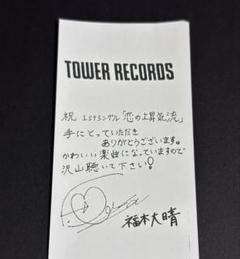 TOWER RECORDS
祝 1stシングル「恋の上昇気流」
手にとっていただき
ありがとうございます。
かわいい楽曲になっていますので
沢山聴いて下さい!
福本大晴